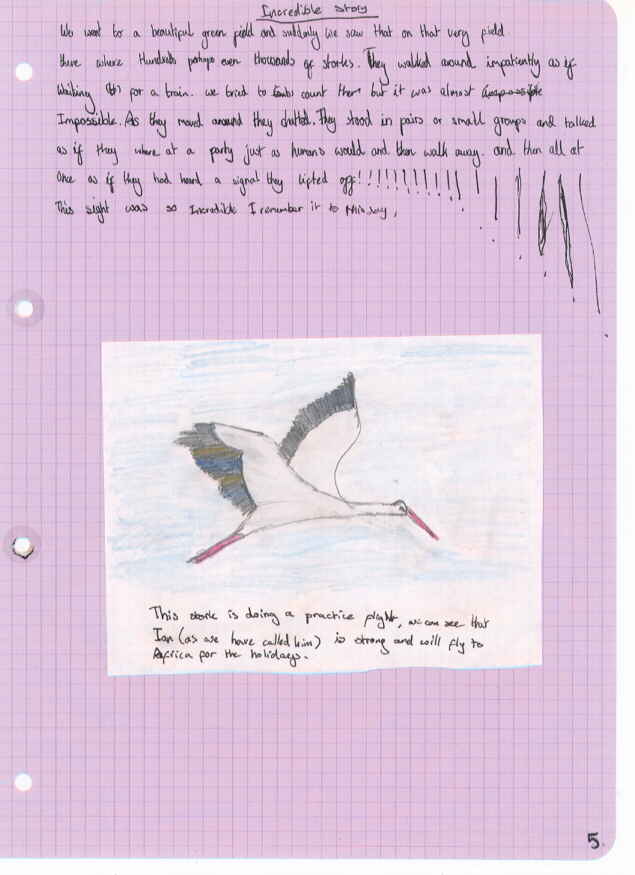 Incredible Story
We went to a beautiful green field and suddonly we saw that on that very field
there where Hundreds perhaps even thousands of storkes. They walked around impatiently as if
Waiting for a train. we tried to count them but it was almost
Impossible. As they moved around they chatted. They stood in pairs or small groups and talked
as if they where at a party just as humans would and then walk away. and then all at
Once as if they had heard a signal they lifted off!!!!!!!!!!!!!!!!!
This sight was so Incredible I remember it to this day.
This stork is doing a practice flight, we can see that
Ian (as we have called him) is strong and will fly to
Africa for the holidays.
5.